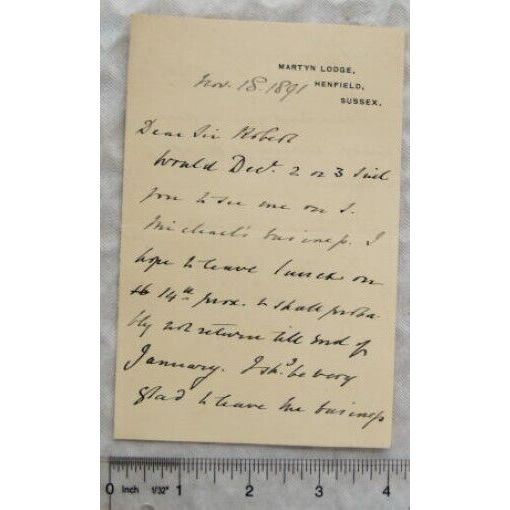 MARTYN LODGE,
HENFIELD,
SUSSEX.
Nov. 18. 1891
Dear Sir Robert
Would Decr. 2 or 3 suit
you to see me on S.
Michael's business. I
hope to leave on
14th prox. & shall proba-
bly not return till end of
January. I shd. be very
glad to leave the business
0 Inch 1/32" 1 2 3 4